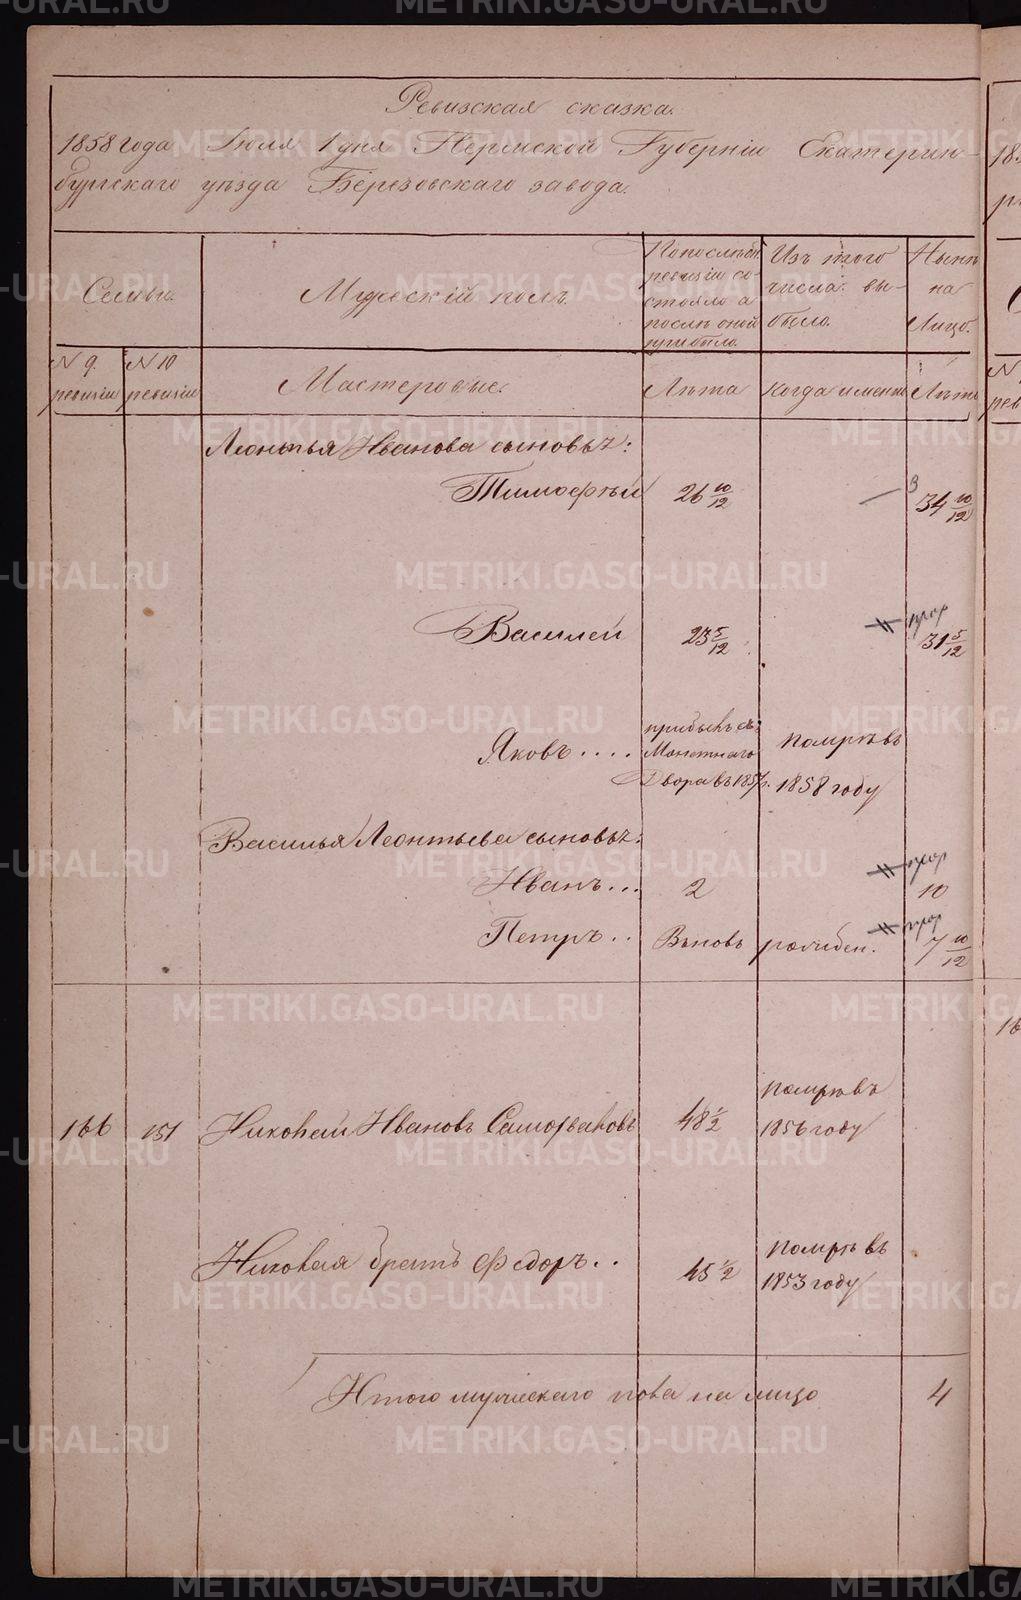 Ревизская сказка.
1858 года Іюля 1 дня Пермской Губерніи Екатерин-
бургскаго уѣзда Березовскаго завода.
Семьи.
Мужескій полъ.
По послѣдн.
ревизіи со-
стояло а
послѣ оной
прибыло.
Изъ того
числа вы-
было.
Нынѣ
на
Лицо.
N 9.
ревизіи
N 10
ревизіи
Мастеровые.
Лѣта
когда именно
Лѣта
Леонтья Иванова сыновья:
Тимофѣй 26 10/12 — 3 34 10/12
Василей 23 5/12 31 5/12
Яковъ.... прибылъ съ Монетнаго Двора въ 1857 г. помре въ 1858 году
Василья Леонтьева сыновья:
Иванъ... 2 10
Петръ.. Вновь рожден. 7 10/12
166 151 Николай Ивановъ Самохваловъ 48 1/2 помре въ 1856 году
Николая братъ Федоръ.. 45 1/2 помре въ 1853 году
Итого мужескаго пола на лицо 4
METRIKI.GASO-URAL.RU